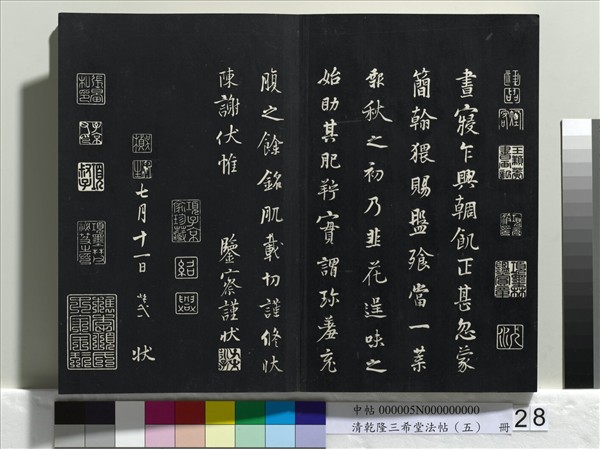 晝寢乍興輖飢正甚忽蒙
簡翰猥賜盤飧當一葉
報秋之初乃韭花逞味之
始助其肥羜實謂珍羞充
腹之餘銘肌載切謹修狀
陳謝伏惟
鑒察謹狀
七月十一日
狀
項子京
家珍藏
中帖 000005N000000000
清乾隆三希堂法帖（五） 冊 28